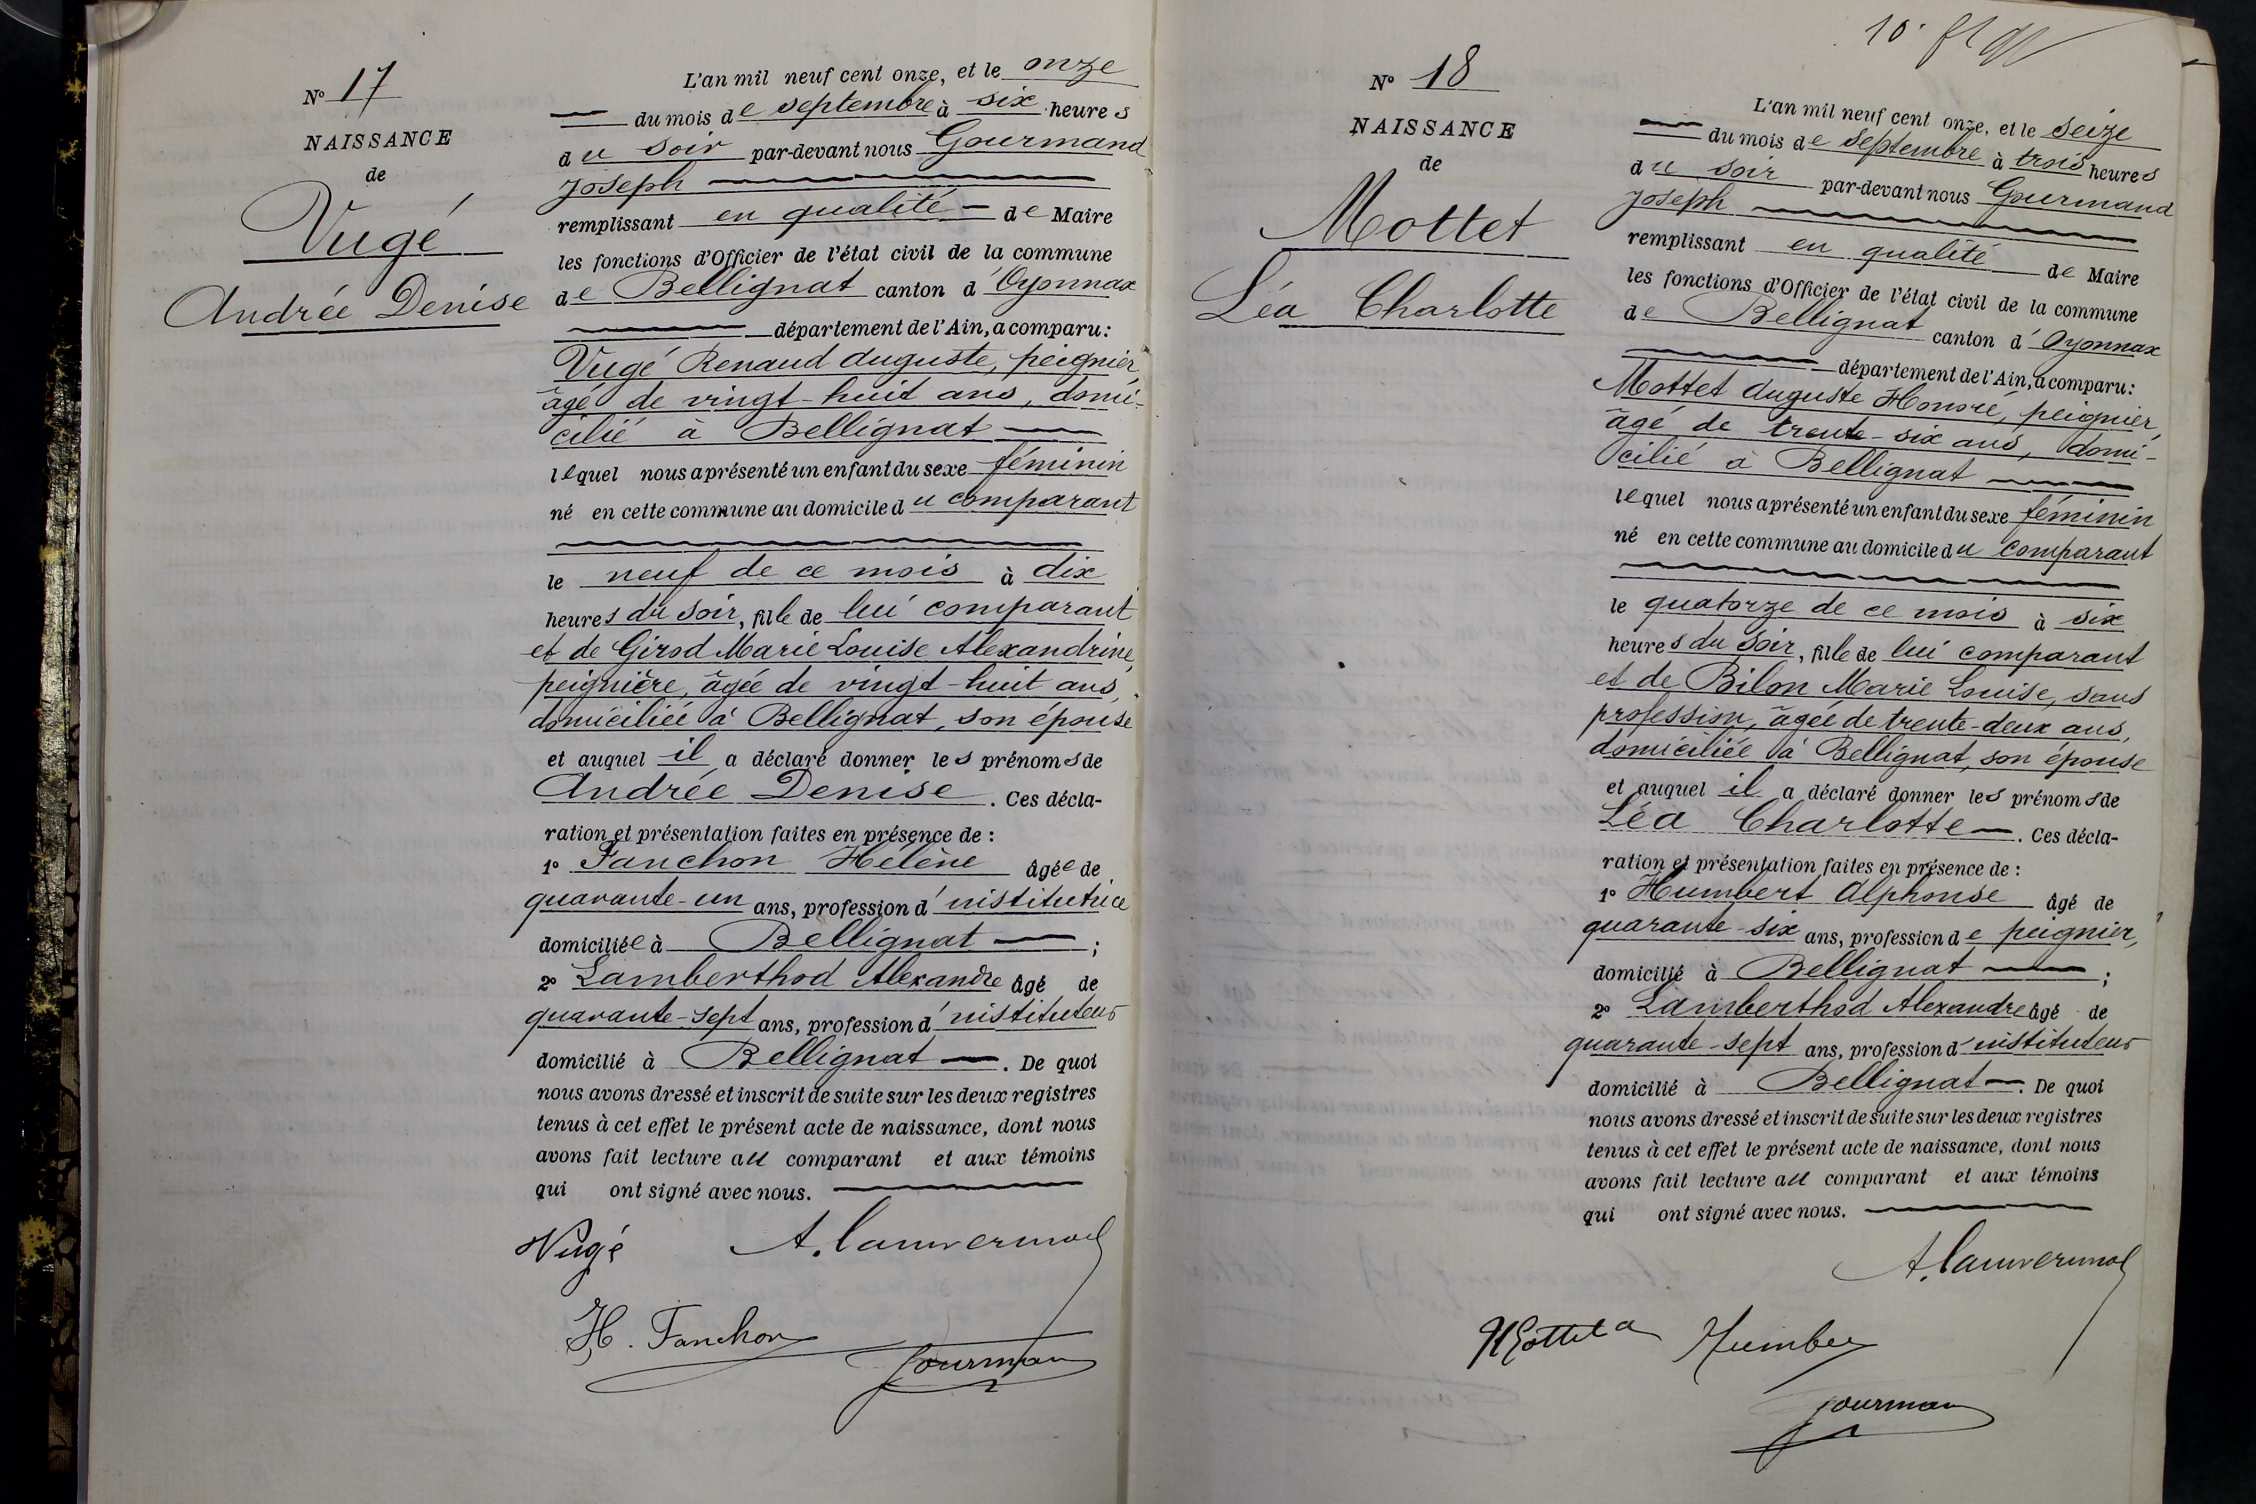 N° 17
NAISSANCE
de
Vugé
Andrée Denise
L'an mil neuf cent onze, et le onze
du mois de septembre à six heures
du soir par-devant nous Gourmand
Joseph
remplissant en qualité de Maire
les fonctions d'Officier de l'état civil de la commune
de Bellignat canton d'Oyonnax
département de l'Ain, a comparu:
Vugé Renaud Auguste, peignier,
âgé de vingt-huit ans, domi-
cilié à Bellignat
lequel nous a présenté un enfant du sexe féminin
né en cette commune au domicile du comparant
le neuf de ce mois à dix
heures du soir, fille de lui comparant
et de Girod Marie Louise Alexandrine,
peignière, âgée de vingt-huit ans,
domiciliée à Bellignat, son épouse
et auquel il a déclaré donner les prénoms de
Andrée Denise. Ces décla-
ration et présentation faites en présence de :
1° Fanchon Hélène âgée de
quarante-un ans, profession d'institutrice
domiciliée à Bellignat ;
2° Lamberthod Alexandre âgé de
quarante-sept ans, profession d'instituteur
domicilié à Bellignat. De quoi
nous avons dressé et inscrit de suite sur les deux registres
tenus à cet effet le présent acte de naissance, dont nous
avons fait lecture au comparant et aux témoins
qui ont signé avec nous.
Vugé
H. Fanchon
Gourman
N° 18
NAISSANCE
de
Mottet
Léa Charlotte
L'an mil neuf cent onze, et le seize
du mois de Septembre à trois heures
du soir par-devant nous Gourmand
Joseph
remplissant en qualité de Maire
les fonctions d'Officier de l'état civil de la commune
de Bellignat canton d'Oyonnax
département de l'Ain, a comparu:
Mottet Auguste Honoré, peignier,
âgé de trente-six ans, domi-
cilié à Bellignat
lequel nous a présenté un enfant du sexe féminin
né en cette commune au domicile du comparant
le quatorze de ce mois à six
heures du soir, fille de lui comparant
et de Bilon Marie Louise, sans
profession, âgée de trente-deux ans,
domiciliée à Bellignat, son épouse
et auquel il a déclaré donner les prénoms de
Léa Charlotte. Ces décla-
ration et présentation faites en présence de :
1° Humbert Alphonse âgé de
quarante-six ans, profession de peignier,
domicilié à Bellignat ;
2° Lamberthod Alexandre âgé de
quarante-sept ans, profession d'instituteur
domicilié à Bellignat. De quoi
nous avons dressé et inscrit de suite sur les deux registres
tenus à cet effet le présent acte de naissance, dont nous
avons fait lecture au comparant et aux témoins
qui ont signé avec nous.
Humber
Gourman